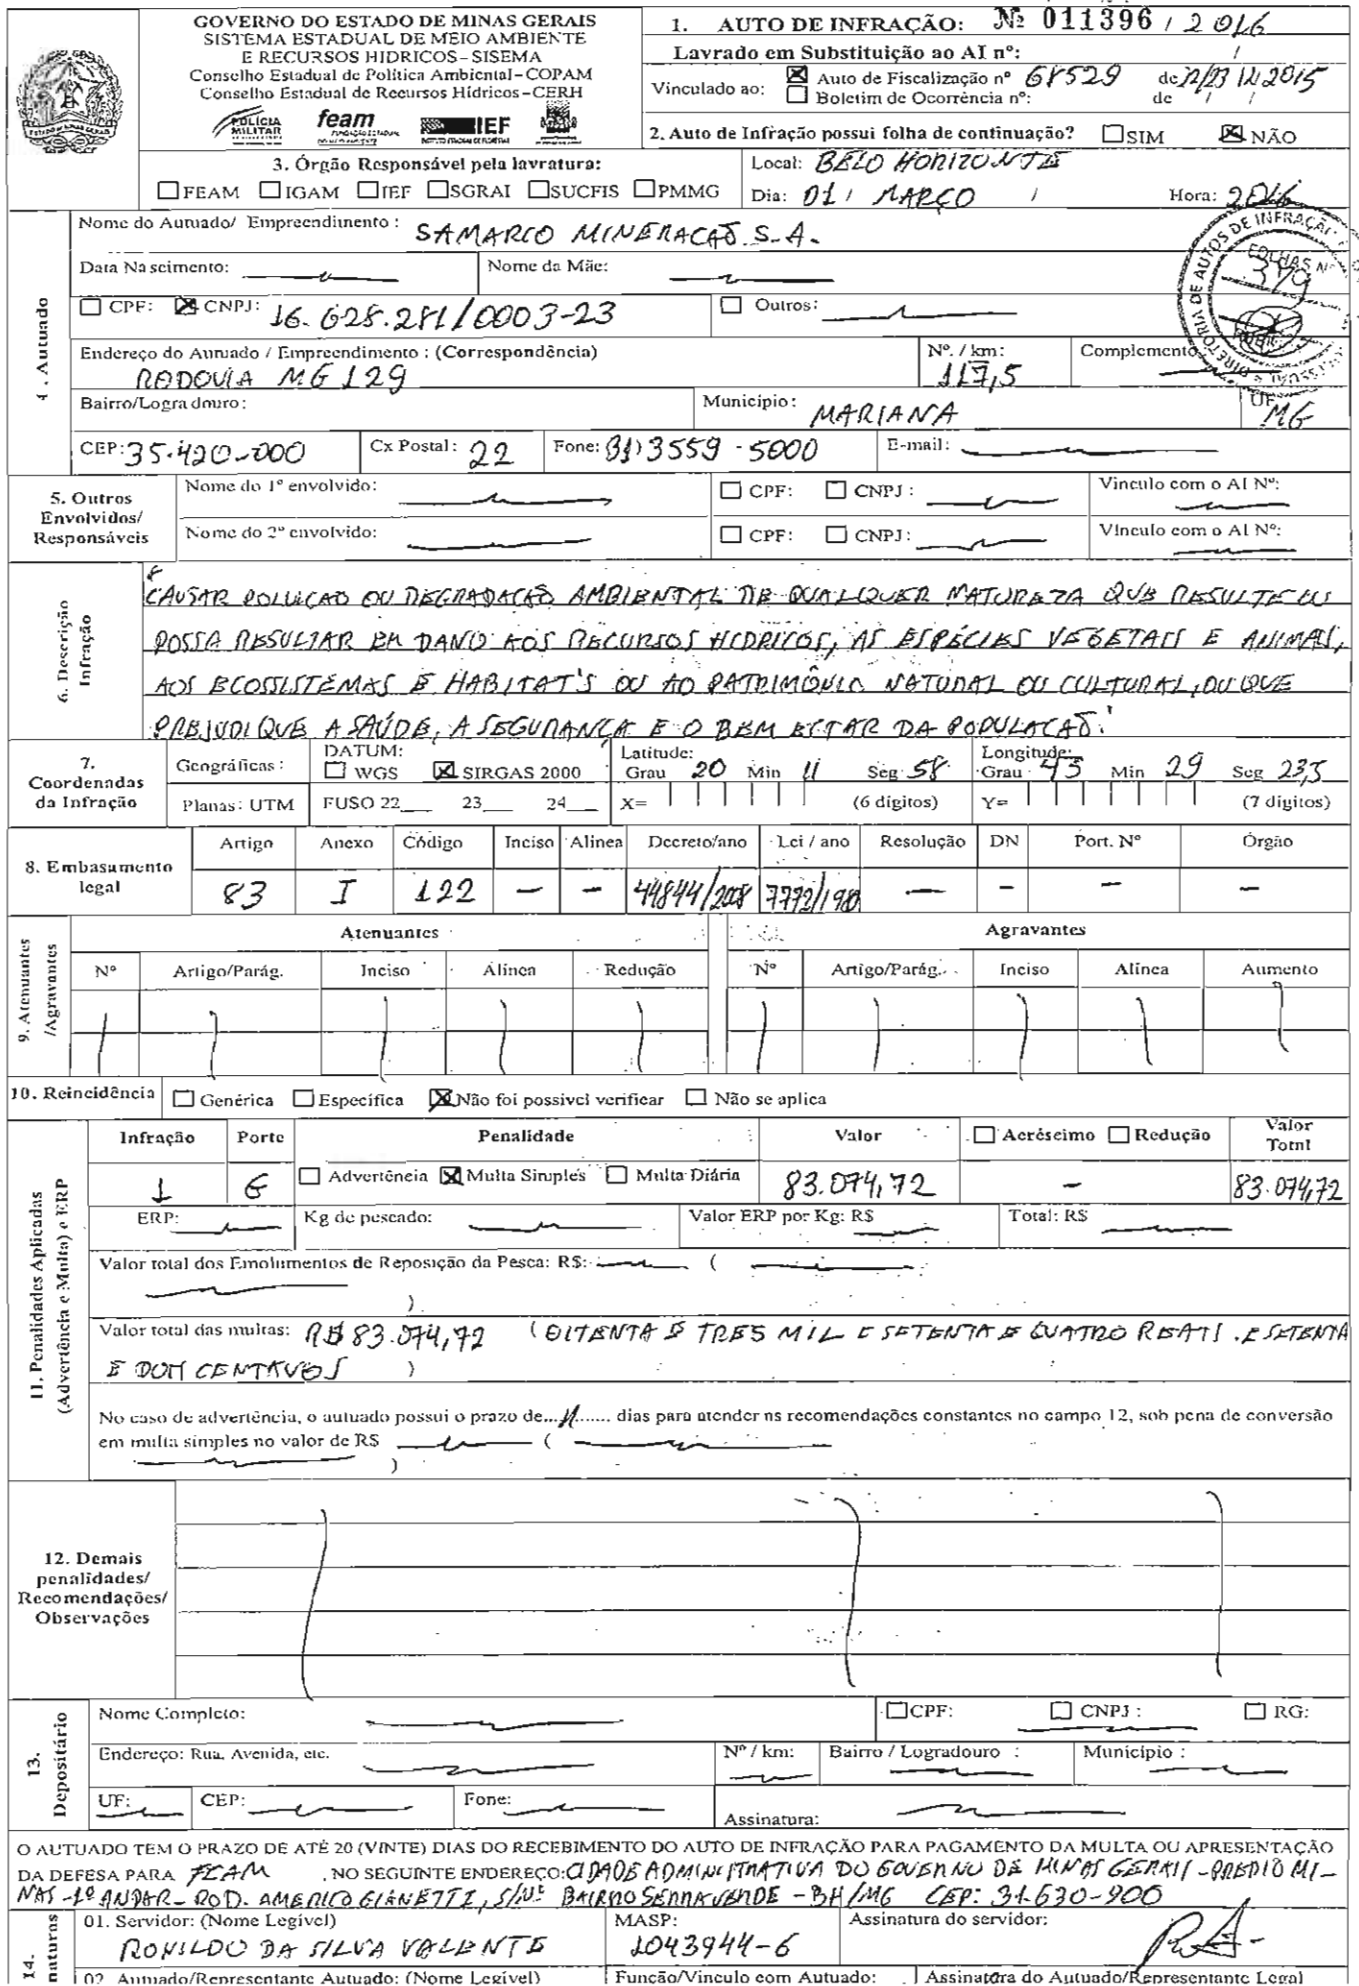 GOVERNO DO ESTADO DE MINAS GERAIS
SISTEMA ESTADUAL DE MEIO AMBIENTE
E RECURSOS HIDRICOS – SISEMA
Conselho Estadual de Política Ambiental – COPAM
Conselho Estadual de Recursos Hídricos – CERH
POLÍCIA MILITAR feam IEF
1. AUTO DE INFRAÇÃO: Nº 011396 / 2016
Lavrado em Substituição ao AI nº: /
Vinculado ao: ☒ Auto de Fiscalização nº 68529 de 22/23/12/2015
☐ Boletim de Ocorrência nº: de / /
2. Auto de Infração possui folha de continuação? ☐ SIM ☒ NÃO
3. Órgão Responsável pela lavratura:
☐ FEAM ☐ IGAM ☐ IEF ☐ SGRAI ☐ SUCFIS ☐ PMMG
Local: BELO HORIZONTE
Dia: 01 / MARÇO / Hora: 2016
DIRETORIA DE AUTOS DE INFRAÇÃO
FOLHAS Nº
379
4. Autuado
Nome do Autuado/ Empreendimento: SAMARCO MINERAÇÃO S.A.
Data Nascimento: Nome da Mãe:
☐ CPF: ☒ CNPJ: 16.628.281/0003-23 ☐ Outros:
Endereço do Autuado / Empreendimento : (Correspondência) Nº. / km: Complemento
RODOVIA MG 129 117,5
Bairro/Logradouro: Município: MARIANA UF MG
CEP: 35.420-000 Cx Postal: 22 Fone: (31) 3559-5000 E-mail:
5. Outros Envolvidos/ Responsáveis
Nome do 1º envolvido: ☐ CPF: ☐ CNPJ: Vinculo com o AI Nº:
Nome do 2º envolvido: ☐ CPF: ☐ CNPJ: Vinculo com o AI Nº:
6. Descrição Infração
"CAUSAR POLUIÇÃO OU DEGRADAÇÃO AMBIENTAL DE QUALQUER NATUREZA QUE RESULTE OU
POSSA RESULTAR EM DANO AOS RECURSOS HIDRICOS, AS ESPÉCIES VEGETAIS E ANIMAIS,
AOS ECOSSISTEMAS E HABITAT'S OU AO PATRIMÔNIO NATURAL OU CULTURAL, OU QUE
PREJUDIQUE A SAÚDE, A SEGURANÇA E O BEM ESTAR DA POPULAÇÃO."
7. Coordenadas da Infração
Geográficas: DATUM: ☐ WGS ☒ SIRGAS 2000 Latitude: Grau 20 Min 11 Seg 58 Longitude: Grau 43 Min 29 Seg 23,5
Planas: UTM FUSO 22 23 24 X= (6 dígitos) Y= (7 dígitos)
8. Embasamento legal
Artigo Anexo Código Inciso Alínea Decreto/ano Lei / ano Resolução DN Port. Nº Órgão
83 I 122 – – 44844/2008 7772/1980 – – – –
9. Atenuantes /Agravantes
Atenuantes Agravantes
Nº Artigo/Parág. Inciso Alínea Redução Nº Artigo/Parág. Inciso Alínea Aumento
10. Reincidência ☐ Genérica ☐ Específica ☒ Não foi possível verificar ☐ Não se aplica
11. Penalidades Aplicadas (Advertência e Multa) e ERP
Infração Porte Penalidade Valor ☐ Acréscimo ☐ Redução Valor Total
1 G ☐ Advertência ☒ Multa Simples ☐ Multa Diária 83.074,72 – 83.074,72
ERP: Kg de pescado: Valor ERP por Kg: R$ Total: R$
Valor total dos Emolumentos de Reposição da Pesca: R$: (
)
Valor total das multas: R$ 83.074,72 (OITENTA E TRES MIL E SETENTA E QUATRO REAIS. E SETENTA
E DOIS CENTAVOS )
No caso de advertência, o autuado possui o prazo de... ...... dias para atender as recomendações constantes no campo 12, sob pena de conversão
em multa simples no valor de R$ (
)
12. Demais penalidades/ Recomendações/ Observações
13. Depositário
Nome Completo: ☐ CPF: ☐ CNPJ: ☐ RG:
Endereço: Rua, Avenida, etc. Nº / km: Bairro / Logradouro : Município :
UF: CEP: Fone: Assinatura:
O AUTUADO TEM O PRAZO DE ATÉ 20 (VINTE) DIAS DO RECEBIMENTO DO AUTO DE INFRAÇÃO PARA PAGAMENTO DA MULTA OU APRESENTAÇÃO
DA DEFESA PARA FEAM, NO SEGUINTE ENDEREÇO: CIDADE ADMINISTRATIVA DO GOVERNO DE MINAS GERAIS - PREDIO MI-
NAS - 1º ANDAR - ROD. AMERICO GIANETTI, S/Nº BAIRRO SERRA VERDE - BH/MG CEP: 31.630-900
14. naturas
01. Servidor: (Nome Legível) MASP: Assinatura do servidor:
RONILDO DA SILVA VALENTE 1043944-6
02. Autuado/Representante Autuado: (Nome Legível) Função/Vinculo com Autuado: Assinatura do Autuado/Representante Legal